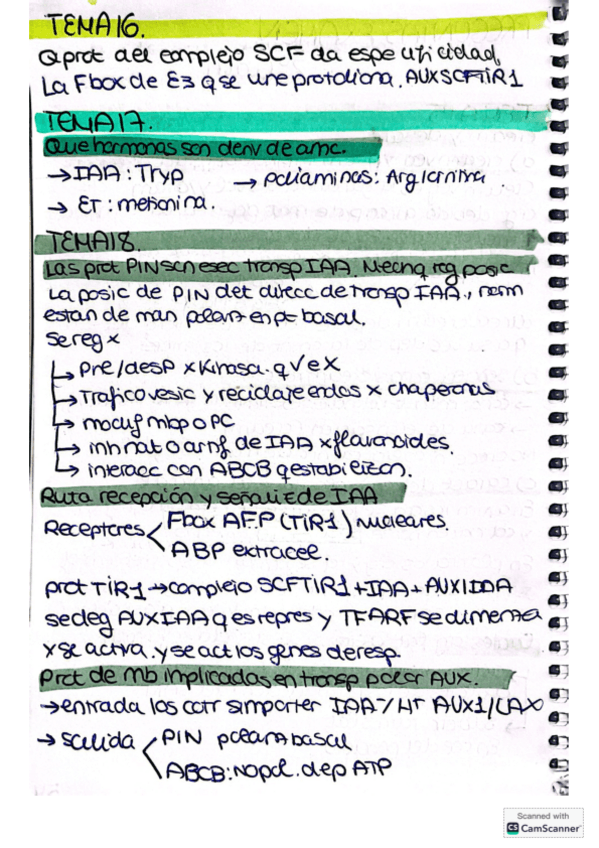 TEMA16.
Q prot del complejo SCF da especificidad
La Fbox de E3 q se une prot diana. AUX SCFTIR1
TEMA17.
Que hormonas son deriv de amc.
→ IAA: Tryp → poliaminas: Arg/ornitina
→ ET: metionina.
TEMA18.
Las prot PIN son esec transp IAA. Mecnq reg posic
La posic de PIN det direcc de transp IAA., norm
estan de man polar en pt basal.
se reg x
→ Pre/desP x kinasa. q ve x
→ Trafico vesic y reciclaje endos x chaperonas
→ modif mb p o PC
→ inh nat o artif de IAA x flavonoides.
→ interacc con ABCB q estabilizan.
Ruta recepción y señaliz de IAA
Receptores Fbox AFP (TIR1) nucleares.
ABP extracel.
prot TIR1 → complejo SCFTIR1 + IAA + AUXIAA
se deg AUXIAA q es repres y TFARF se dimeriza
x se activa. y se act los genes de resp.
Prot de mb implicadas en transp polar AUX.
→ entrada los carr simporter IAA/H+ AUX1/LAX
→ salida PIN polar basal
ABCB: No pol. dep ATP
Scanned with
CS CamScanner